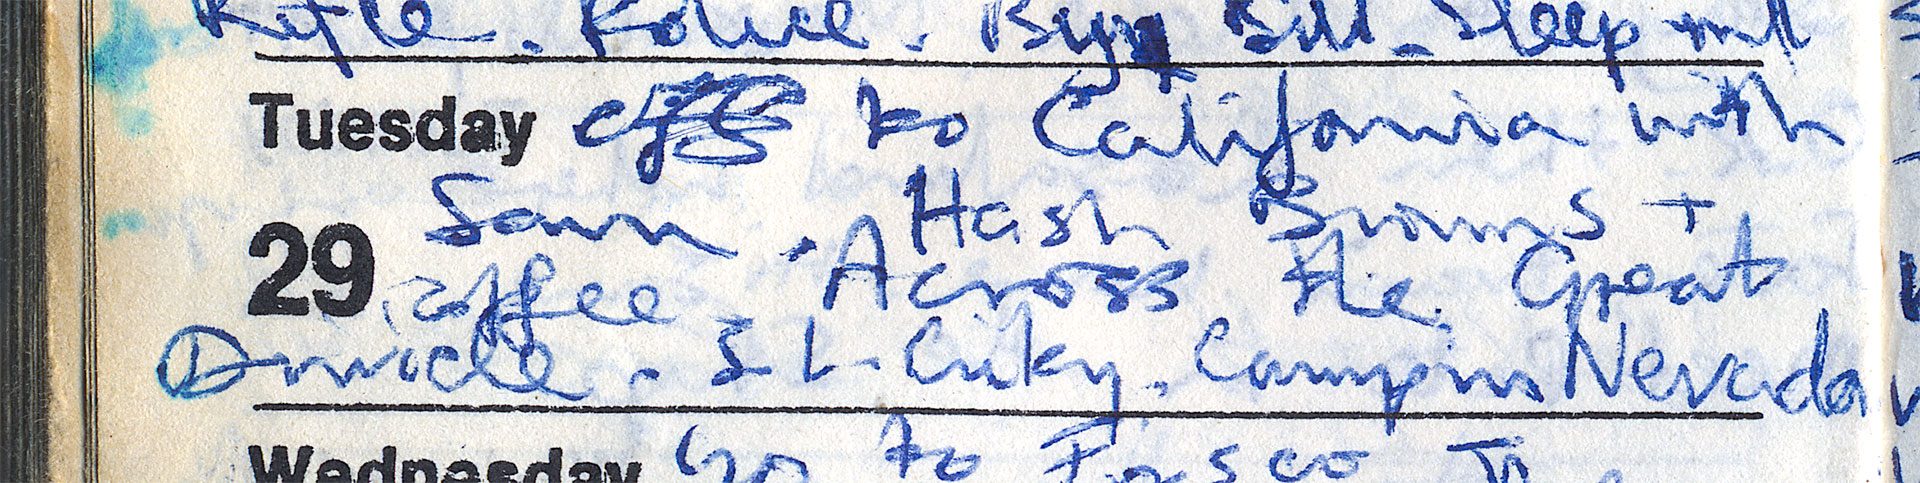 Rifle. Police. Big Bill - Sleep
Tuesday off to California with
Sam. Hash Browns +
29 coffee. Across the Great
Divide. S L City. Camp in Nevada
Wednesday Go to Frisco